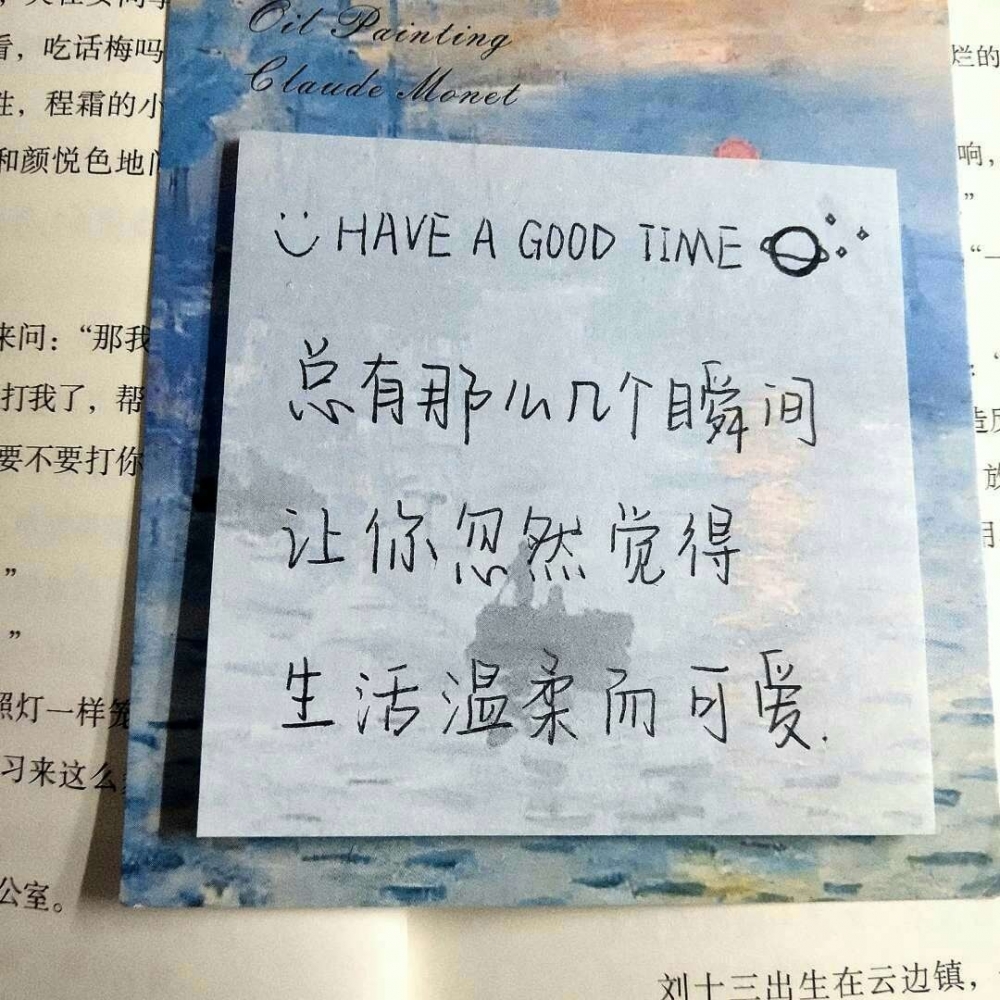 Oil Painting
Claude Monet
看，吃话梅吗
程霜的小
和颜悦色地
来问：“那我
打我了，帮
要不要打你
”
”
照灯一样笼
习来这么
公室。
HAVE A GOOD TIME
总有那么几个瞬间
让你忽然觉得
生活温柔而可爱.
烂的
响，
”
“一
放
刘十三出生在云边镇，